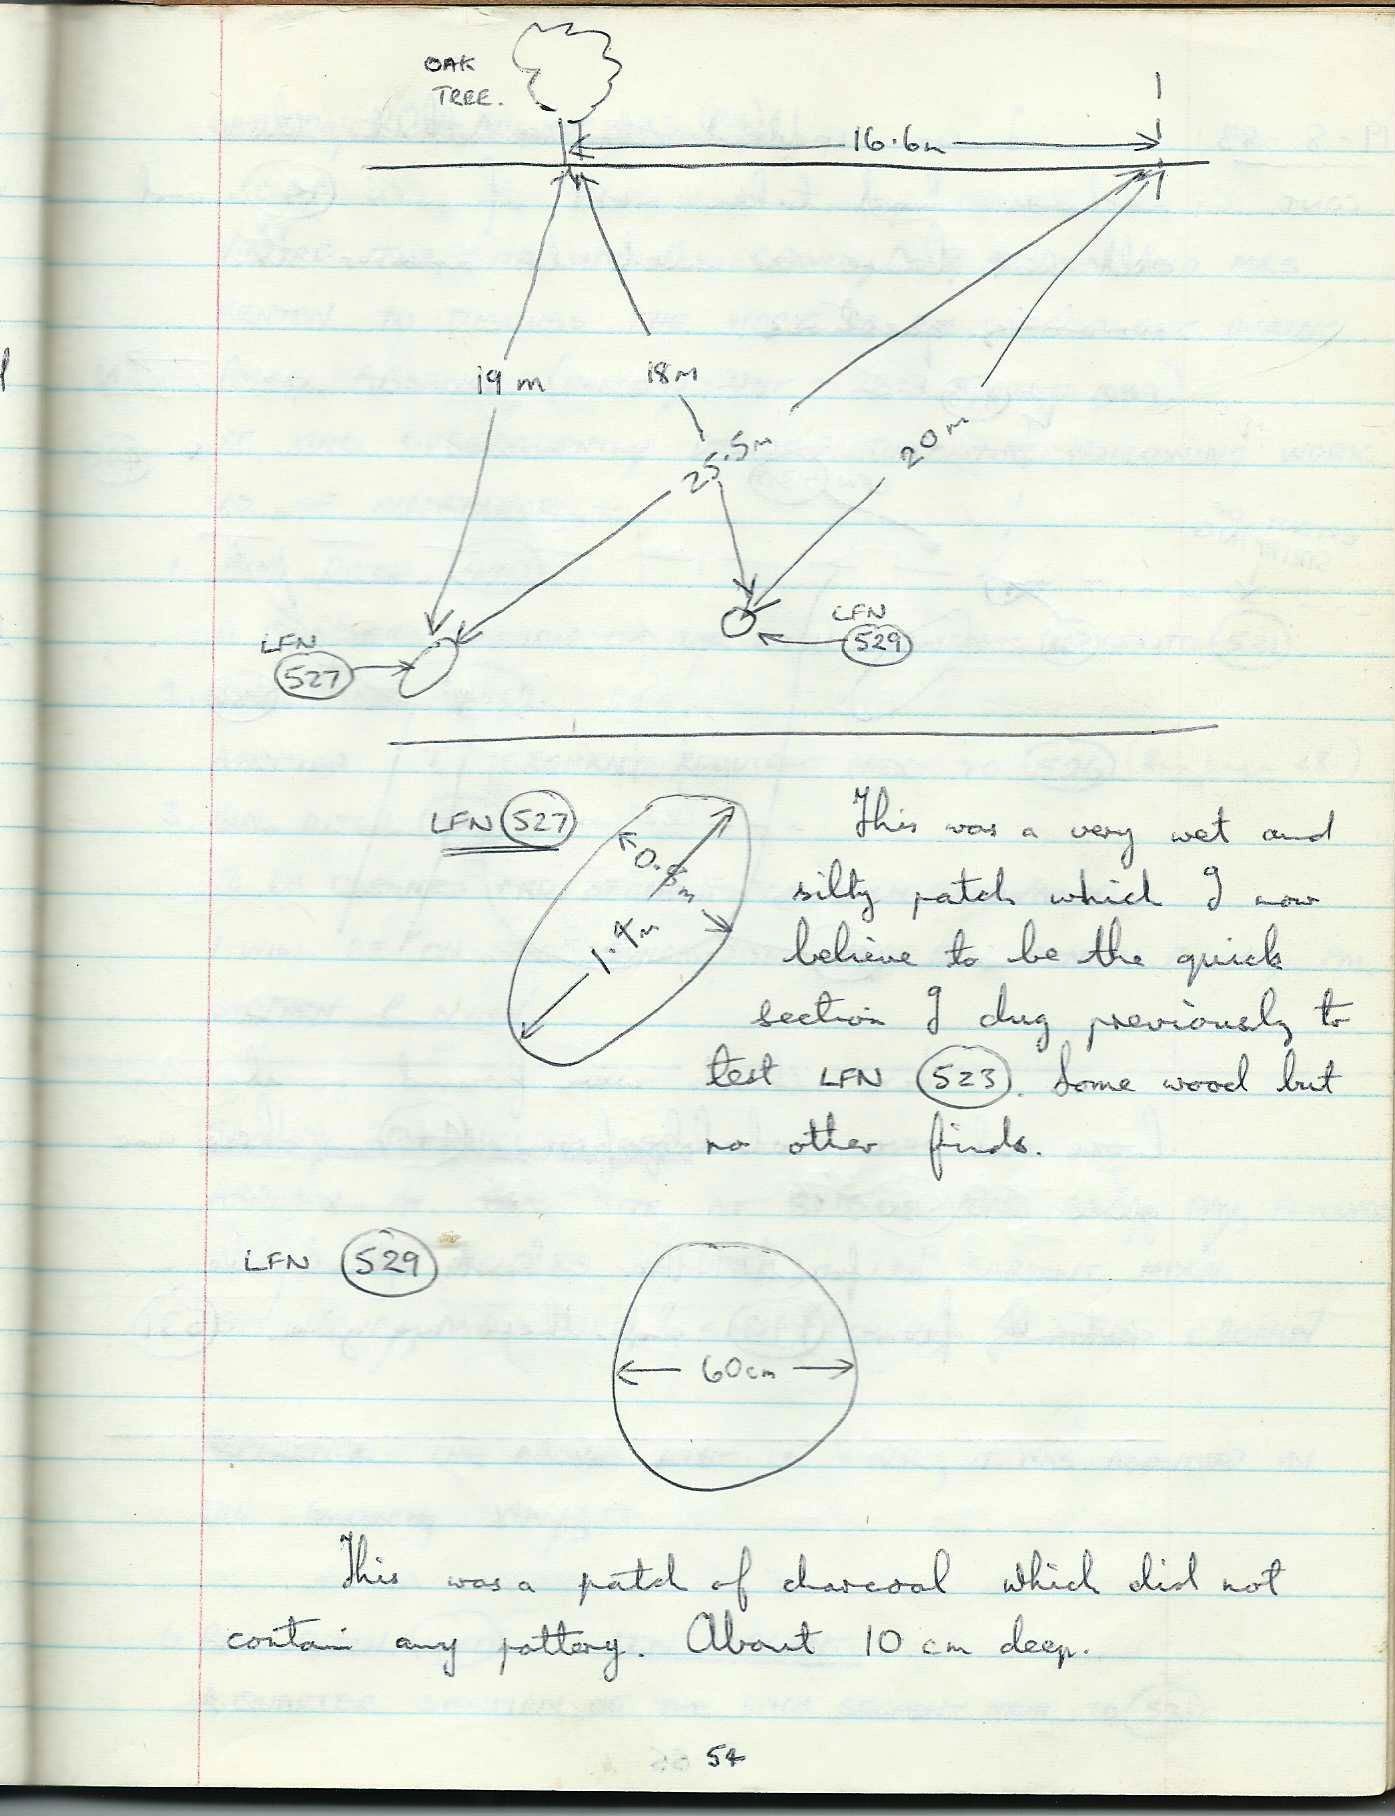 OAK
TREE.
16.6m
19m
18m
25.5m
20m
LFN
529
LFN
527
LFN 527
0.8m
1.4m
This was a very wet and
silty patch which I now
believe to be the quick
section I dug previously to
test LFN 523. Some wood but
no other finds.
LFN 529
60cm
This was a patch of charcoal which did not
contain any pottery. About 10 cm deep.
54